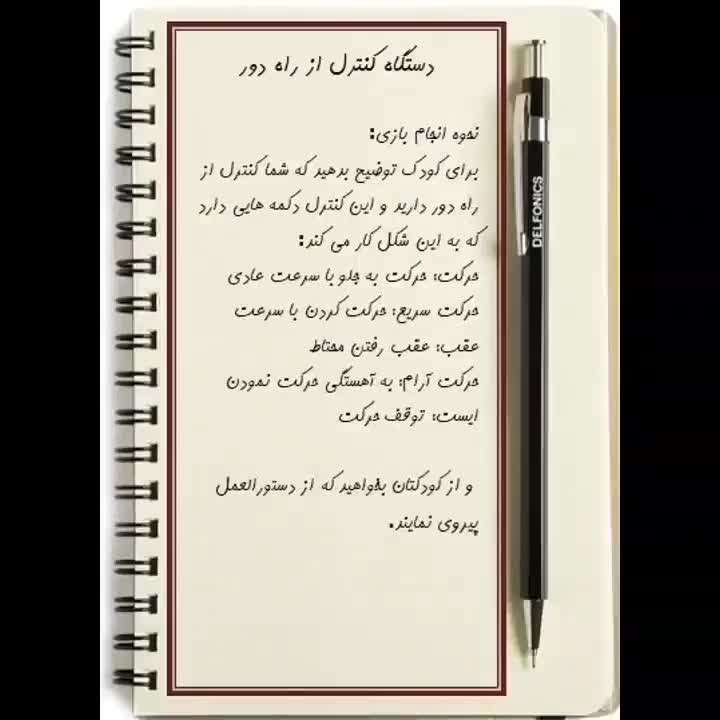 دستگاه کنترل از راه دور
نحوه انجام بازی:
برای کودک توضیح بدهید که شما کنترل از
راه دور دارید و این کنترل دکمه هایی دارد
که به این شکل کار می کند:
حرکت: حرکت به جلو با سرعت عادی
حرکت سریع: حرکت کردن با سرعت
عقب: عقب رفتن محتاط
حرکت آرام: به آهستگی حرکت نمودن
ایست: توقف حرکت
و از کودکتان بخواهید که از دستورالعمل
پیروی نمایند.
DELFONICS